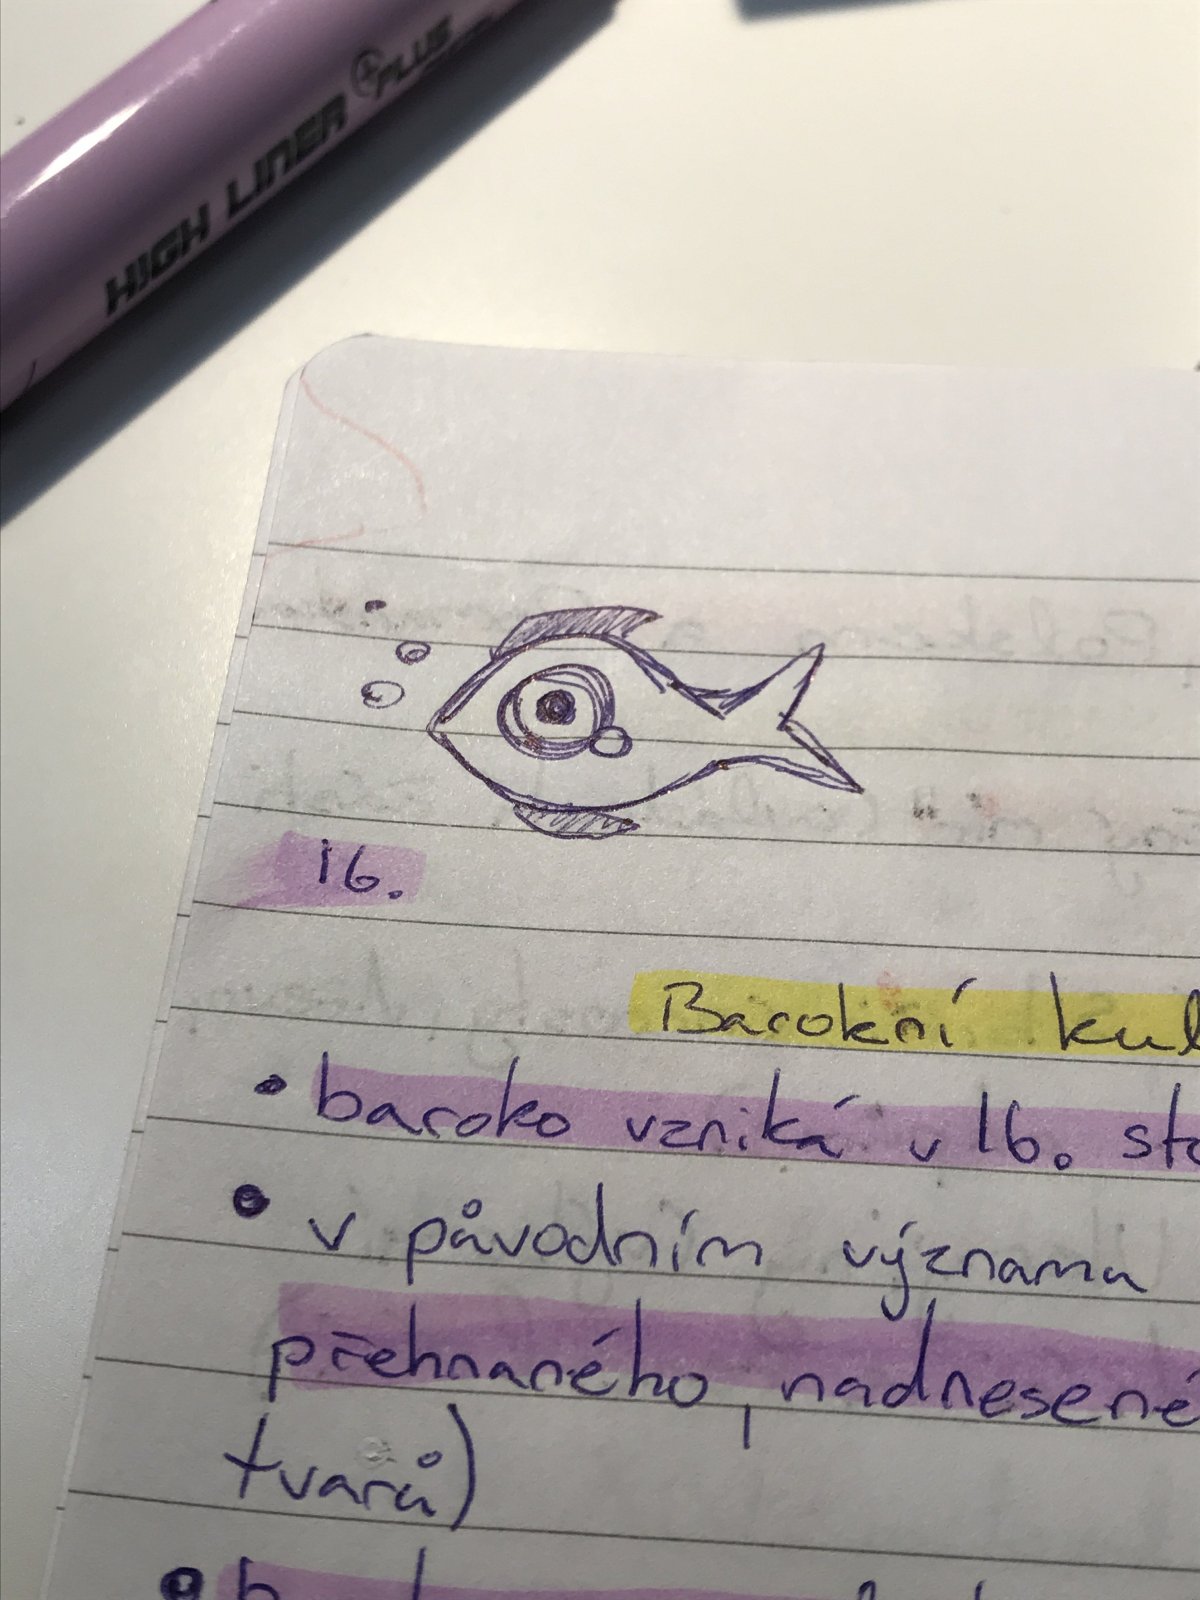 HIGH LINER PLUS
16.
Barokní kul
• baroko vzniká v 16. sto
• v původním významu
přehnaného, nadnesené
tvarů)